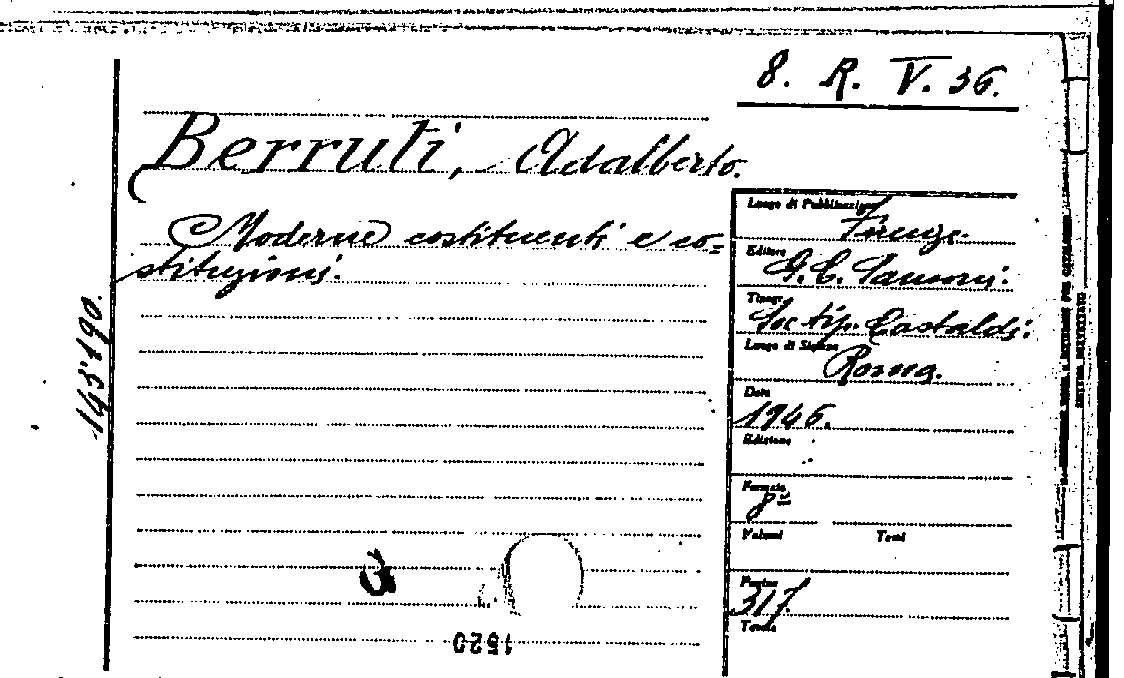 8. R. V. 36.
Berruti, Adalberto.
Moderne costituenti e co=
stituzioni.
145190.
Luogo di Pubblicazione
Firenze.
Editore
G. C. Sansoni.
Tipogr.
Soc tip. Castaldi.
Luogo di Stampa
Roma.
Data
1946.
Edizione
Formato
8º
Volumi Tomi
Pagine
317.
Tavole
3
1520